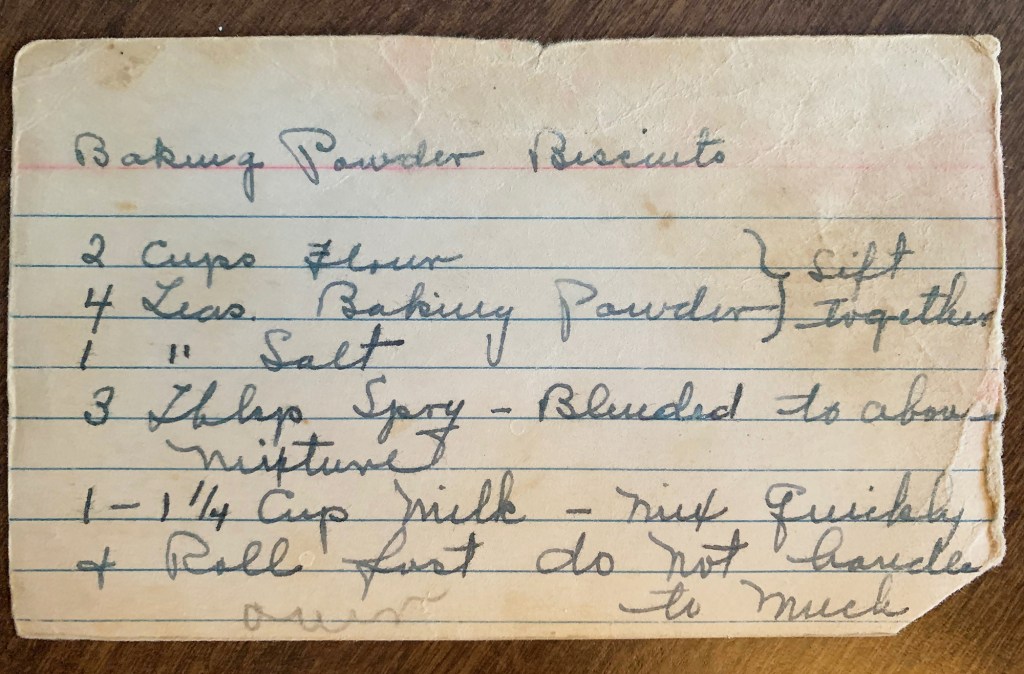 Baking Powder Biscuits
2 Cups Flour } Sift
4 Teas. Baking Powder } together
1 " Salt
3 Tblsp Spry - Blended to above
mixture
1 - 1 1/4 Cup Milk - mix Quickly
+ Roll fast do not handle
to much
over